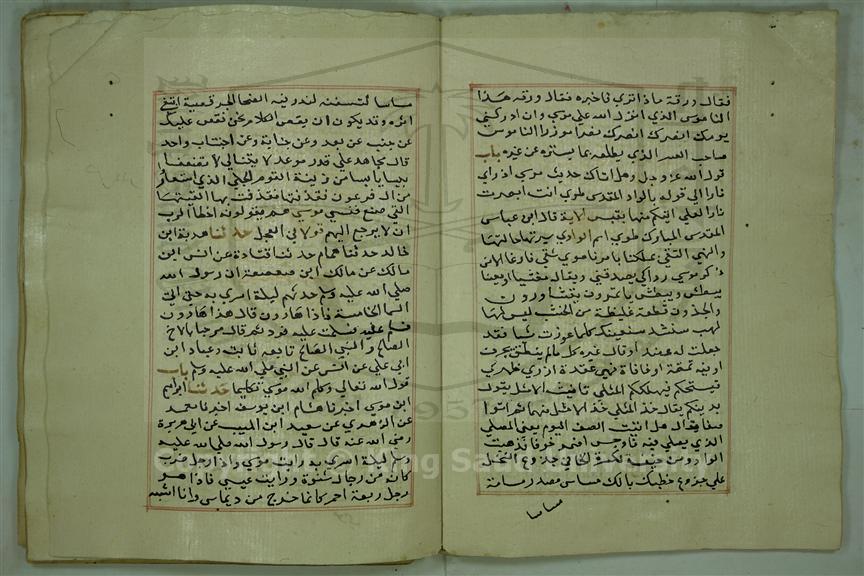 فقال ورقة ماذا ترى فاخبره فقال ورقة هذا
الناموس الذي انزل الله على موسى وان ادركني
يومك انصرك نصرا موزرا الناموس
صاحب السر الذي يطلعه بما يستره عن غيره باب
قول الله عز وجل وهل اتاك حديث موسى اذ راى
نارا الى قوله بالواد المقدس طوى انست ابصرت
نارا لعلي اتيكم منها بقبس الاية قال ابن عباس
المقدس المبارك طوى اسم الوادي سيرتها حالتها
والنهى التقى بملكنا بامرنا هوى شقي فارغا الا من
ذكر موسى ردا كي يصدقني ويقال مغيثا او معينا
يبطش ويبطش ياتمرون يتشاورون
والجذوة قطعة غليظة من الخشب ليس لها
لهب سنشد سنعينك كلما عززت شيا فقد
جعلت له عضدا وقال غيره كل ما لم ينطق بحرف
او فيه تمتمة او فافاة فهي عقدة ازري ظهري
فيسحتكم فيهلككم المثلى تانيث الامثل يقول
بدينكم يقال خذ المثلى خذ الامثل ثم ائتوا
صفا يقال هل اتيت الصف اليوم يعني المصلى
الذي يصلى فيه فاوجس اضمر خوفا فذهبت
الواو من خيفة لكسرة الخا في جذوع النخل
على جذوع خطبك بالك مساس مصدر ماسه
مساسا
مساسا لننسفنه لنذرينه الضحا الحر قصيه اتبعي
اثره وقد يكون ان يقص الكلام نحن نقص عليك
عن جنب عن بعد وعن جنابة وعن اجتناب واحد
قال مجاهد على قدر موعد لا تنيا لا تضعفا
يبسا يابسا من زينة القوم الحلي الذي استعاروا
من ال فرعون فقذفتها القيتها
التي صنع فنسي موسى هم يقولونه اخطا الرب
ان لا يرجع اليهم قولا في العجل حدثنا هدبة ابن
خالد حدثنا همام حدثنا قتادة عن انس ابن
مالك عن مالك ابن صعصعة ان رسول الله
صلى الله عليه وسلم حدثهم ليلة اسري به حتى اتى
السما الخامسة فاذا هارون قال هذا هارون
فسلم عليه فسلمت عليه فرد ثم قال مرحبا بالاخ
الصالح والنبي الصالح تابعه ثابت وعباد ابن
ابي علي عن انس عن النبي صلى الله عليه وسلم باب
قول الله تعالى وكلم الله موسى تكليما حدثنا ابراهيم
ابن موسى اخبرنا هشام ابن يوسف اخبرنا معمر
عن الزهري عن سعيد ابن المسيب عن ابي هريرة
رضي الله عنه قال قال رسول الله صلى الله عليه
وسلم ليلة اسري به رايت موسى واذا رجل ضرب
كانه من رجال شنوة ورايت عيسى فاذا هو
رجل ربعة احمر كانما خرج من ديماس وانا اشبه
Copyright © King Saud University
1957